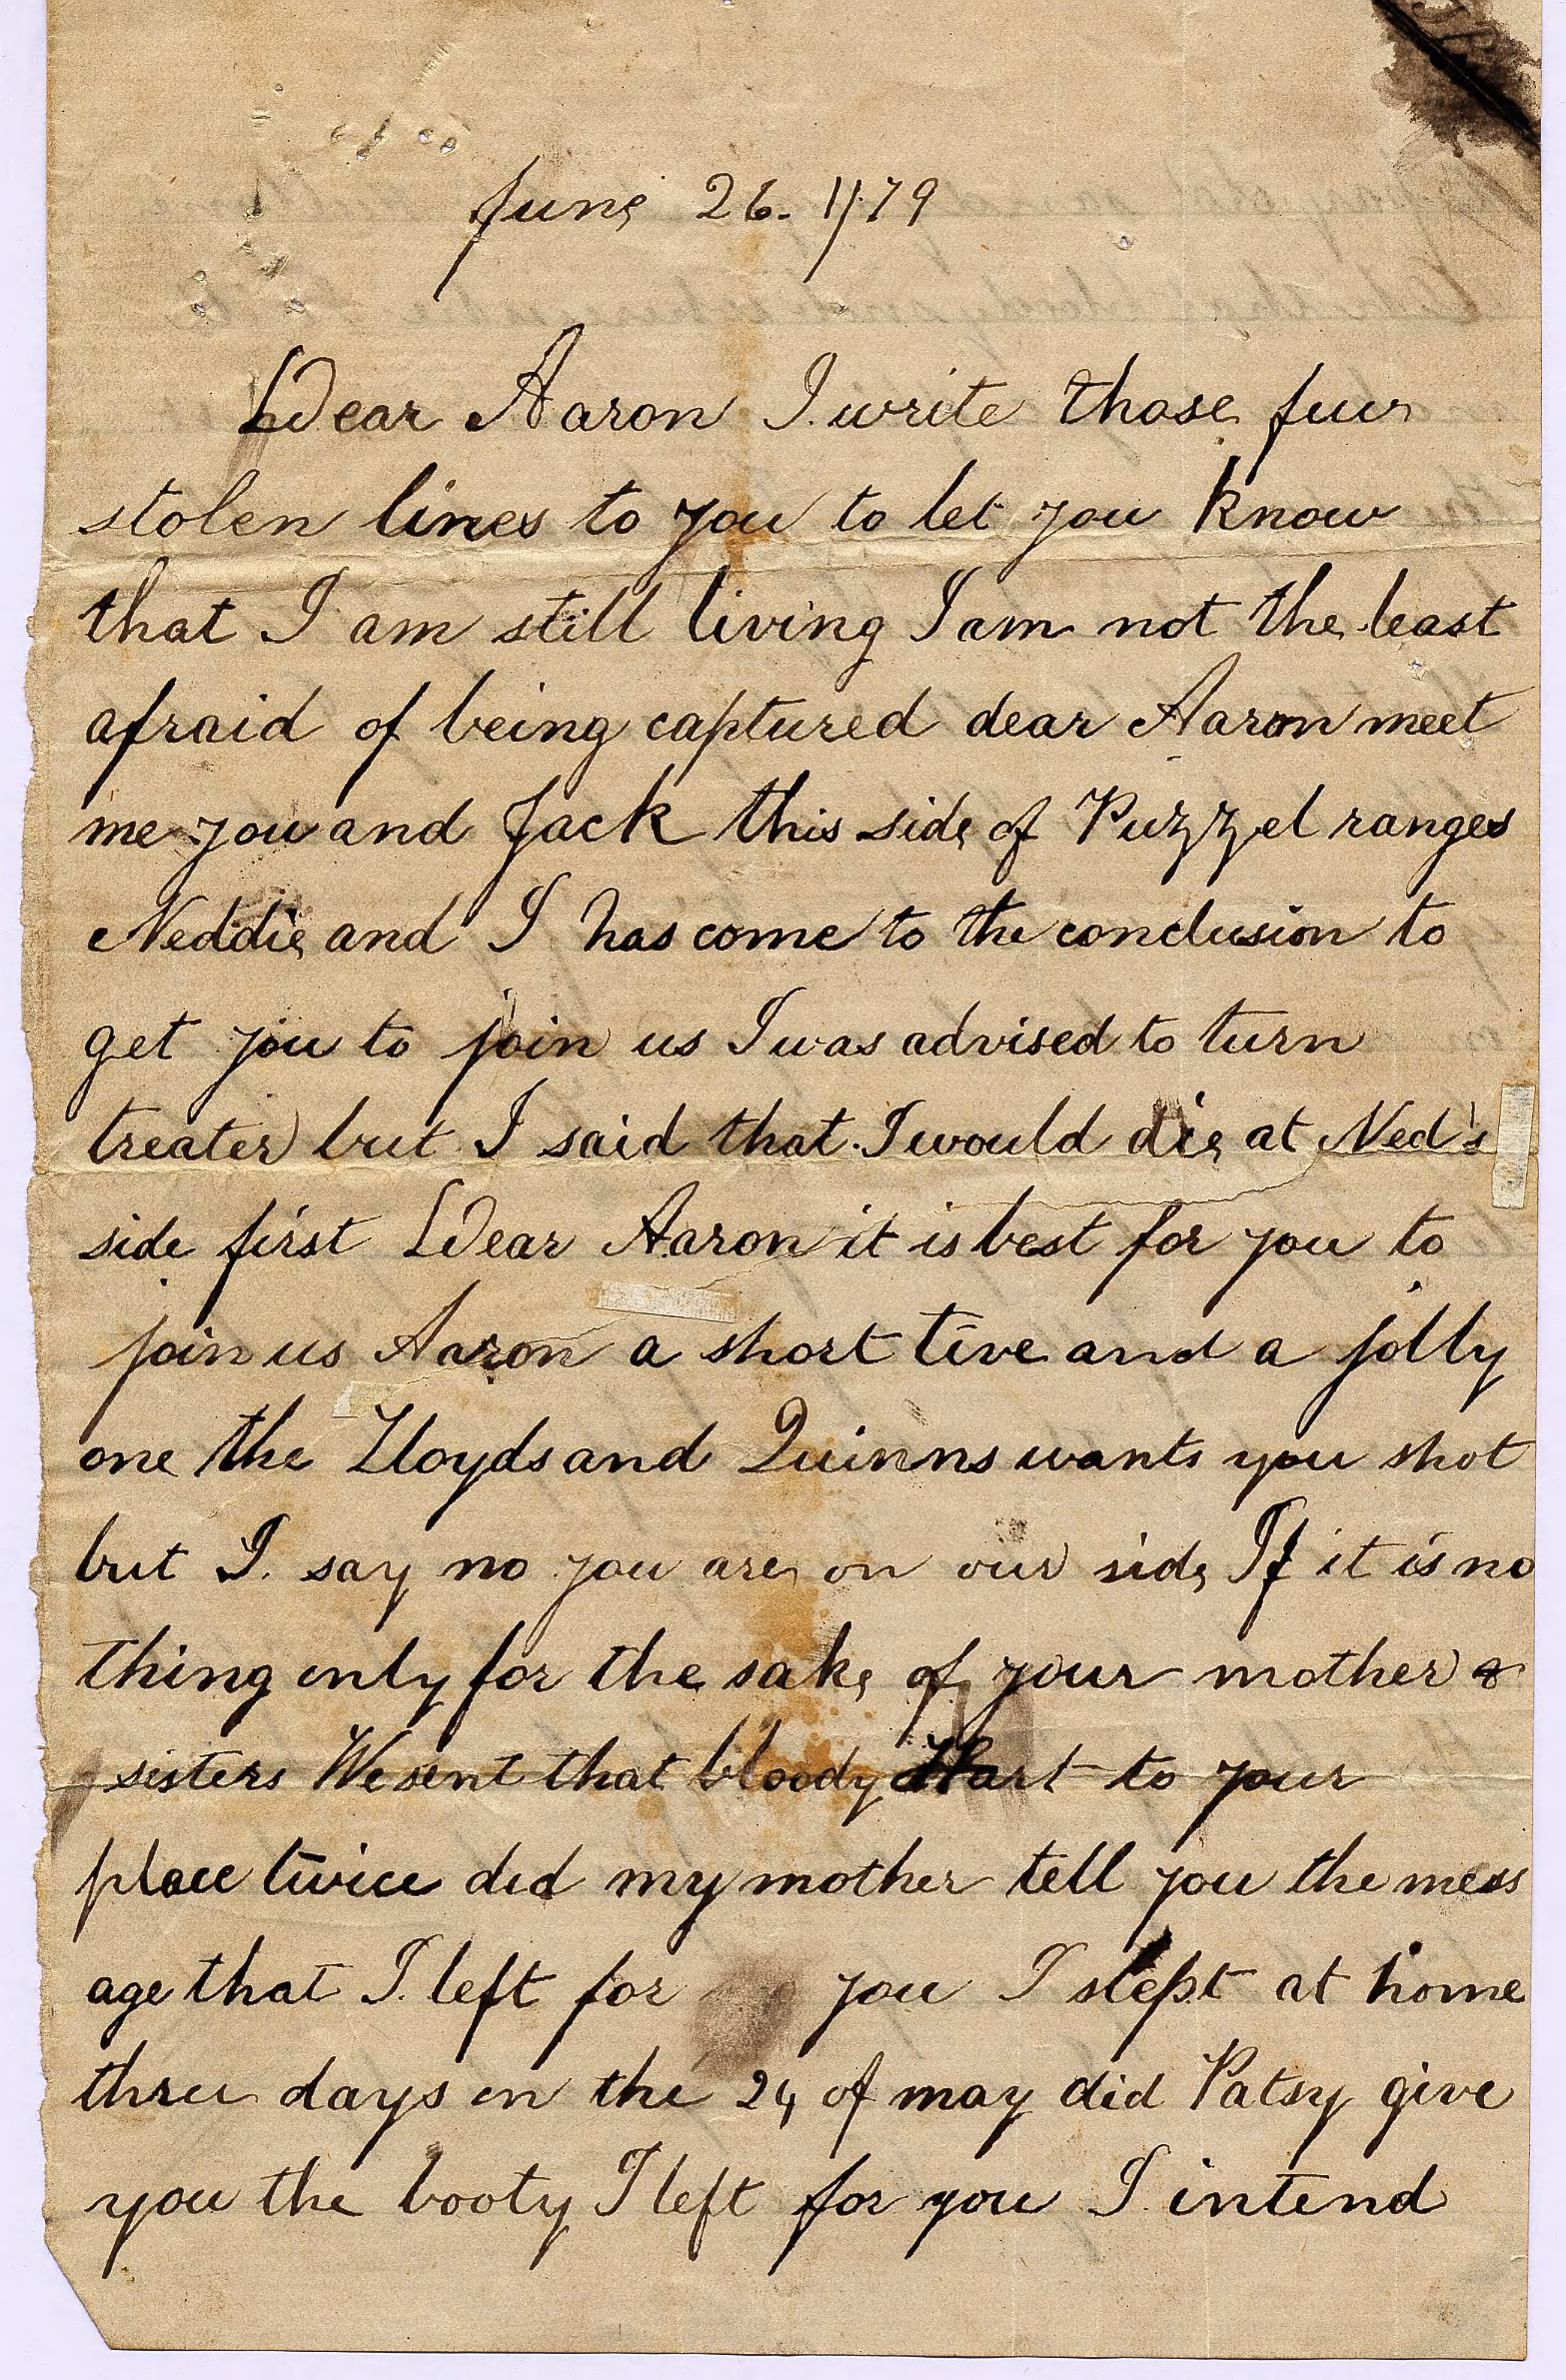 June 26. 1879
Dear Aaron I write those few
stolen lines to you to let you know
that I am still living I am not the least
afraid of being captured dear Aaron meet
me you and Jack this side of Puzzel ranges
Neddie and I has come to the conclusion to
get you to join us I was advised to turn
treater but I said that I would die at Ned's
side first Dear Aaron it is best for you to
join us Aaron a short live and a jolly
one the Lloyds and Quinns wants you shot
but I say no you are on our side If it is no
thing only for the sake of your mother &
sisters We sent that bloody Hart to your
place twice did my mother tell you the mess
age that I left for you I slept at home
three days on the 24 of may did Patsy give
you the booty I left for you I intend